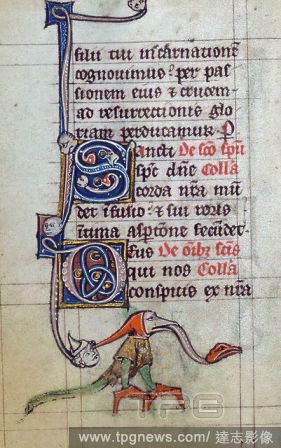 filii tui incarnatione
cognovimus : per pas
sionem eius & crucem
ad resurrectionis glo
riam perducamur. P
Sancti De sco spu
sps dne Colla
corda nra mu
det isusio : & sui roris
intima aspsione fecudet
Deus De oibz scis
qui nos Colla
conspicis ex nra
TPG
www.tpgnews.com/達志影像